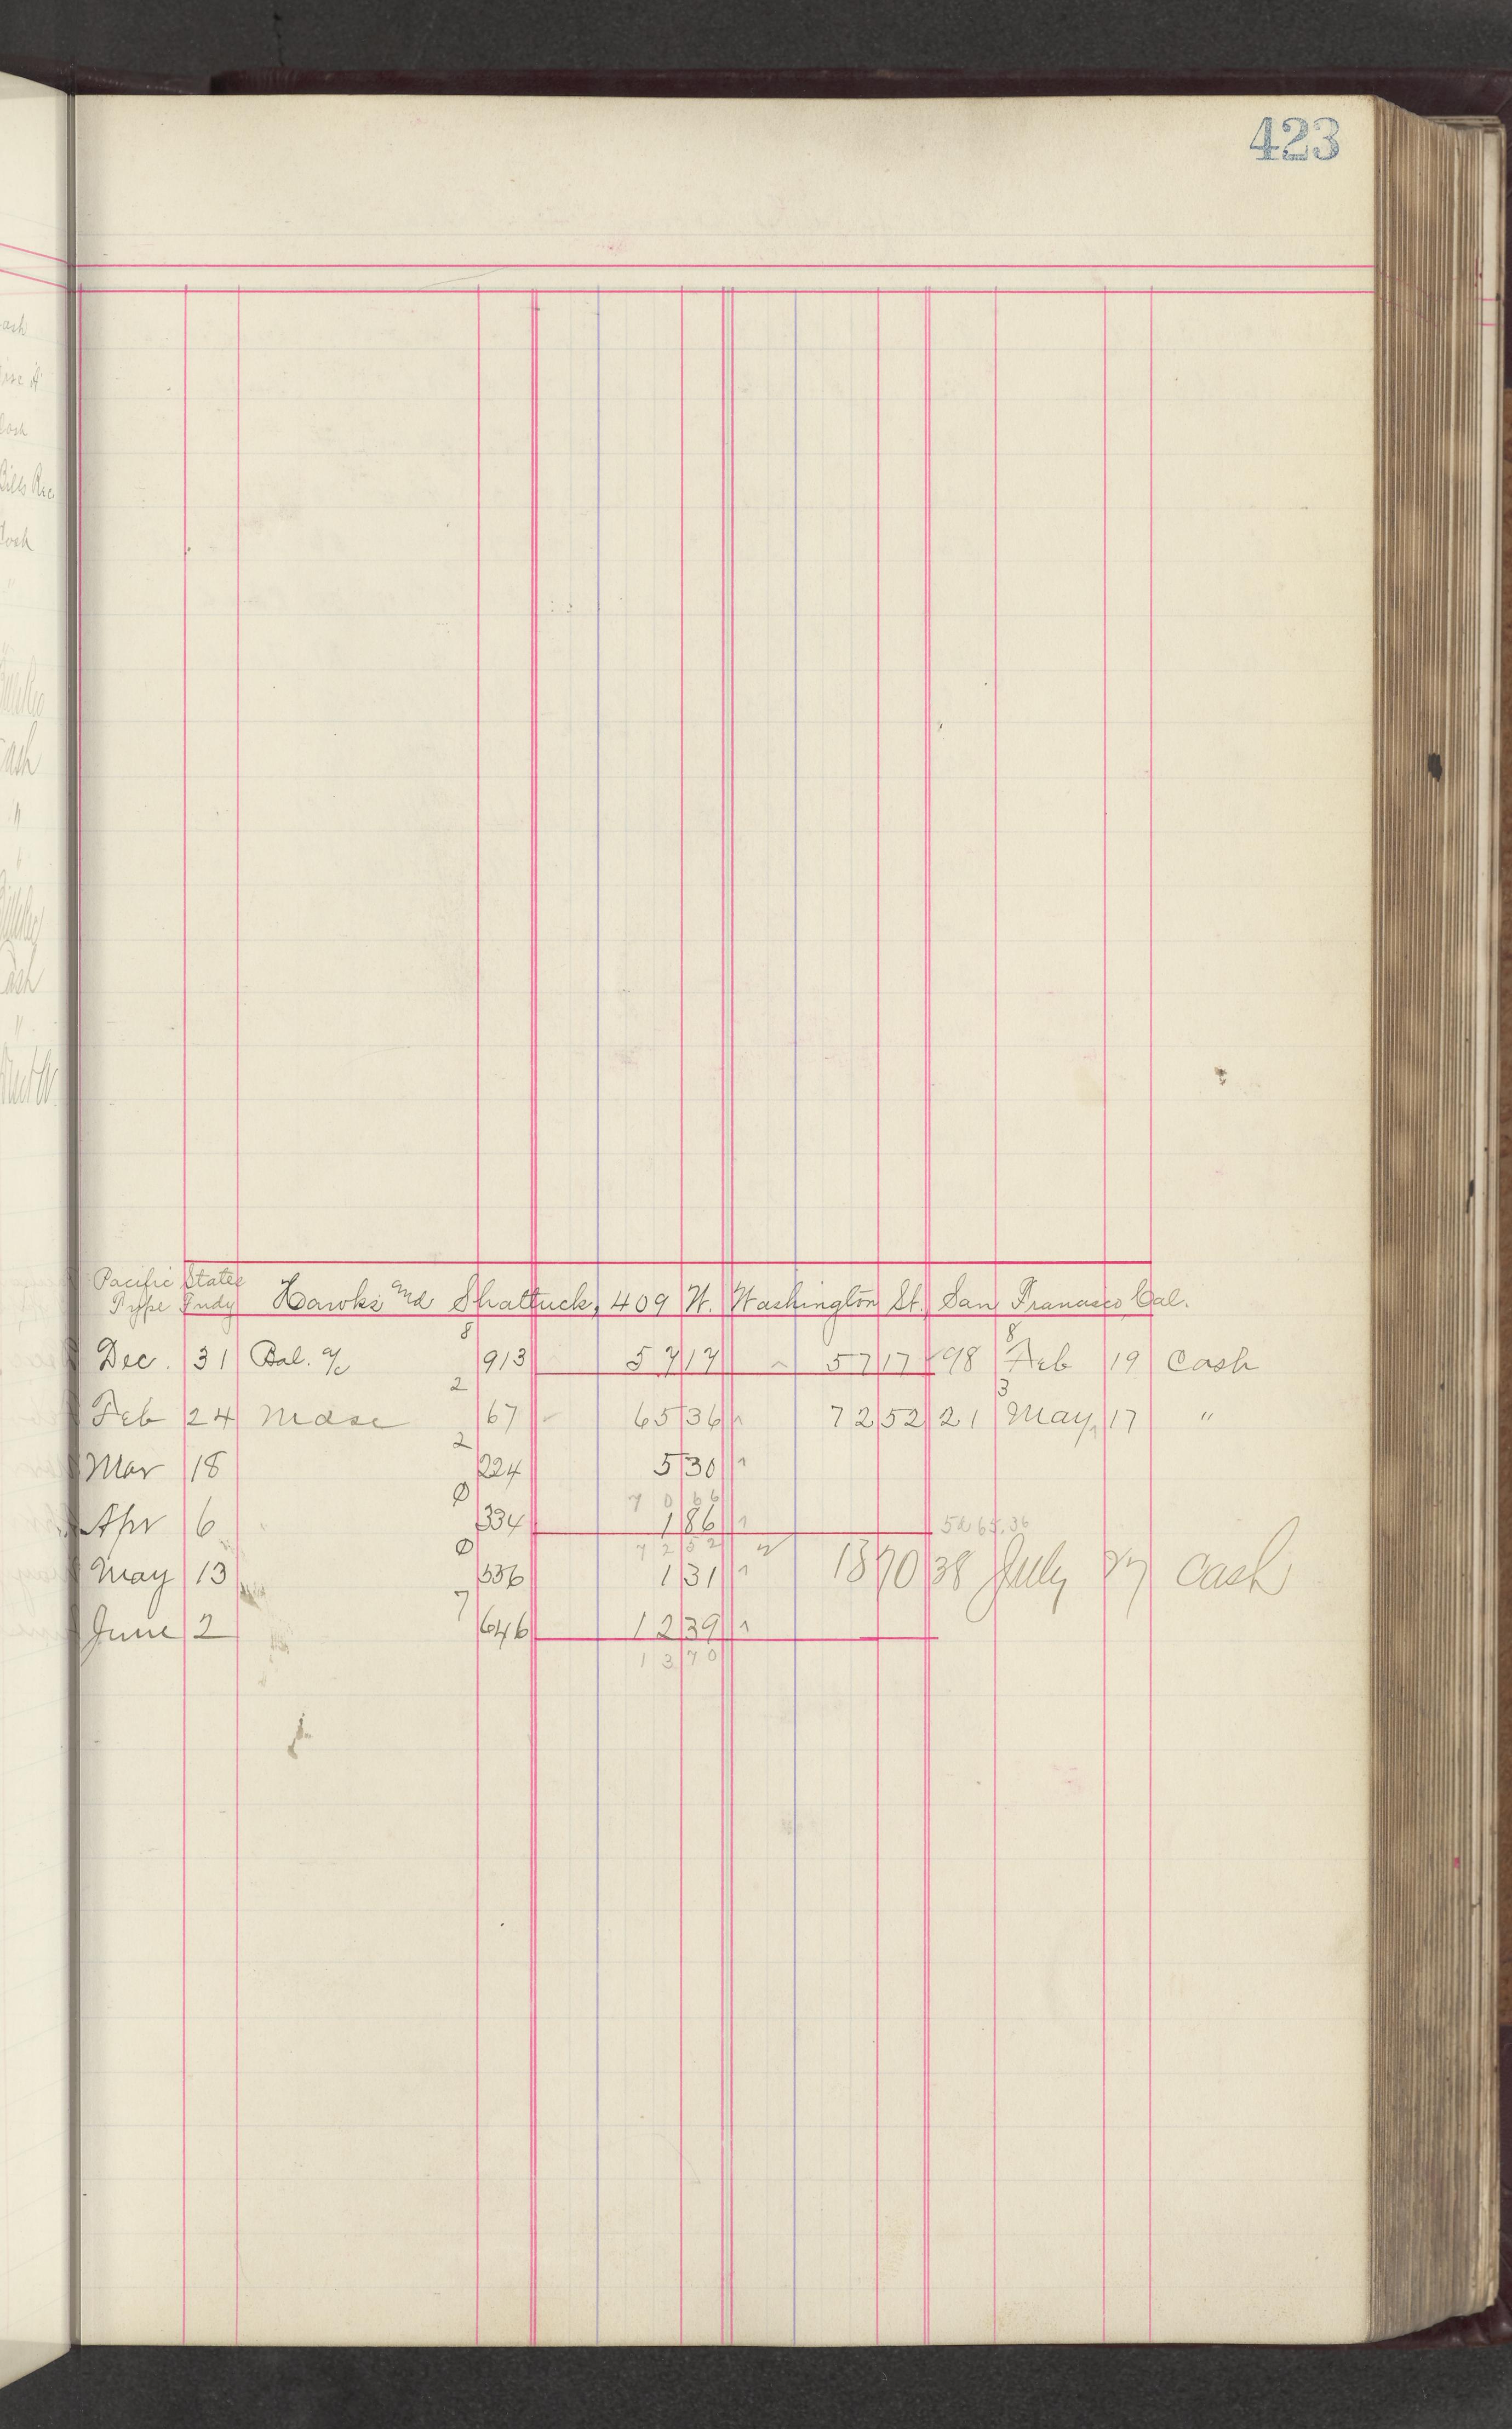 423
Pacific States
Type Fndy Hawks and Shattuck, 409 W. Washington St. San Francisco Cal.
8 8
Dec. 31 Bal. a/c 913 57 17 57 17 98 Feb 19 Cash
2 3
Feb 24 Mdse 67 65 36 72 52 21 May 17 "
2
Mar 18 224 5 30
0 70 66
Apr 6 334 1 86 5265.36
0 72 52
May 13 536 1 31 13 70 38 July 27 Cash
7
June 2 646 12 39
13 70